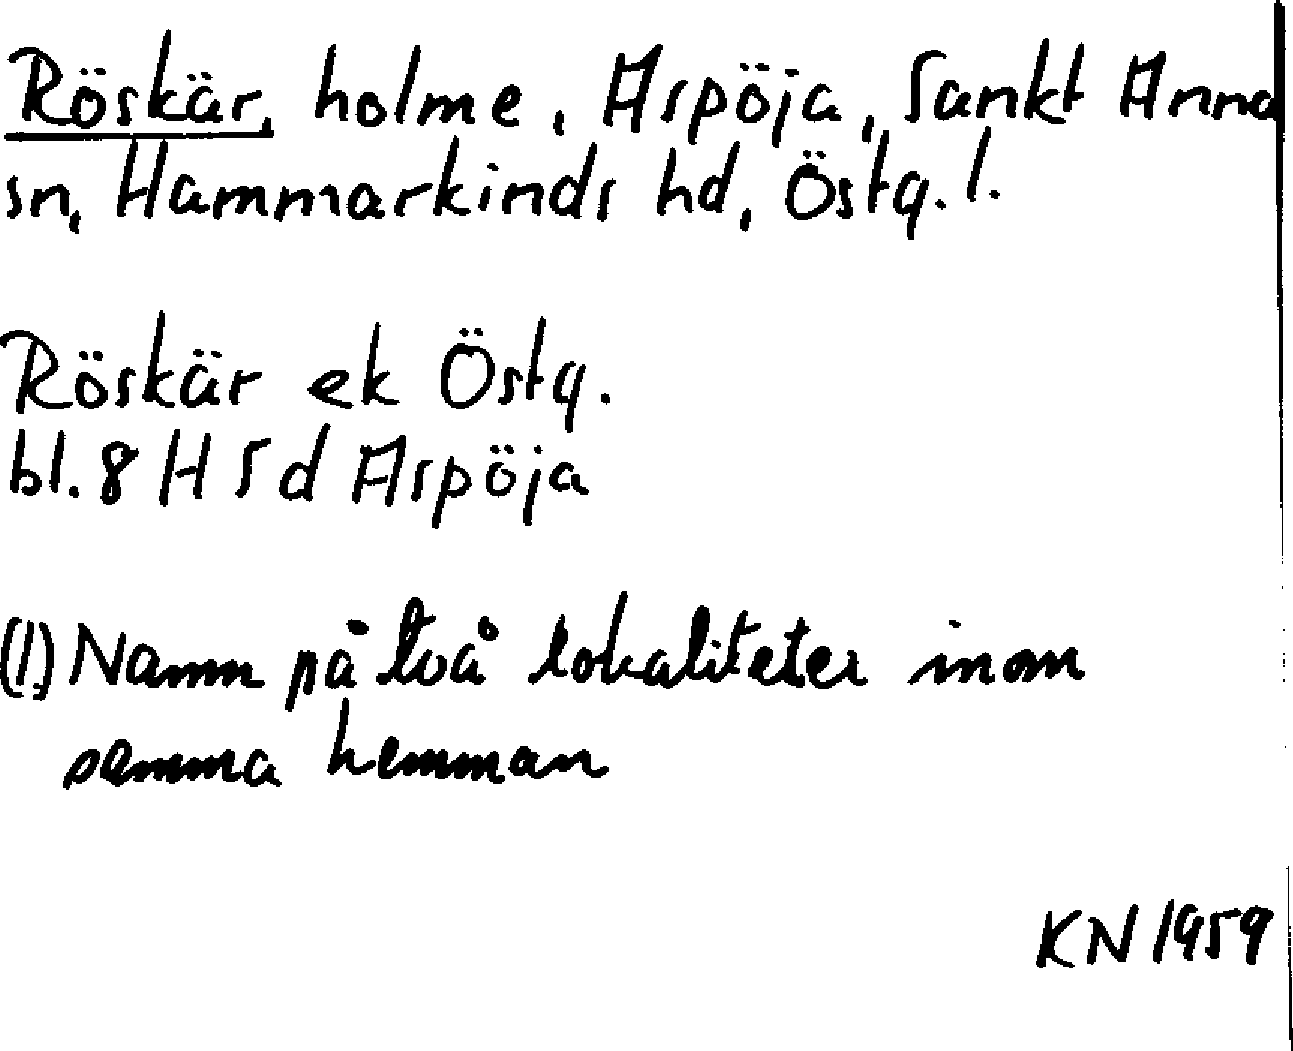 Röskär, holme, Aspöja, Sankt Anna
sn, Hammarkinds hd, Östg. l.
Röskär ek Östg.
bl. 8 H 5 d Aspöja
(!) Namn på två lokaliteter inom
samma hemman
KN 1959